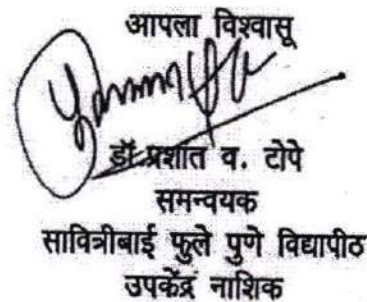 आपला विश्वासू
डॉ.प्रशांत व. टोपे
समन्वयक
सावित्रीबाई फुले पुणे विद्यापीठ
उपकेंद्र नाशिक